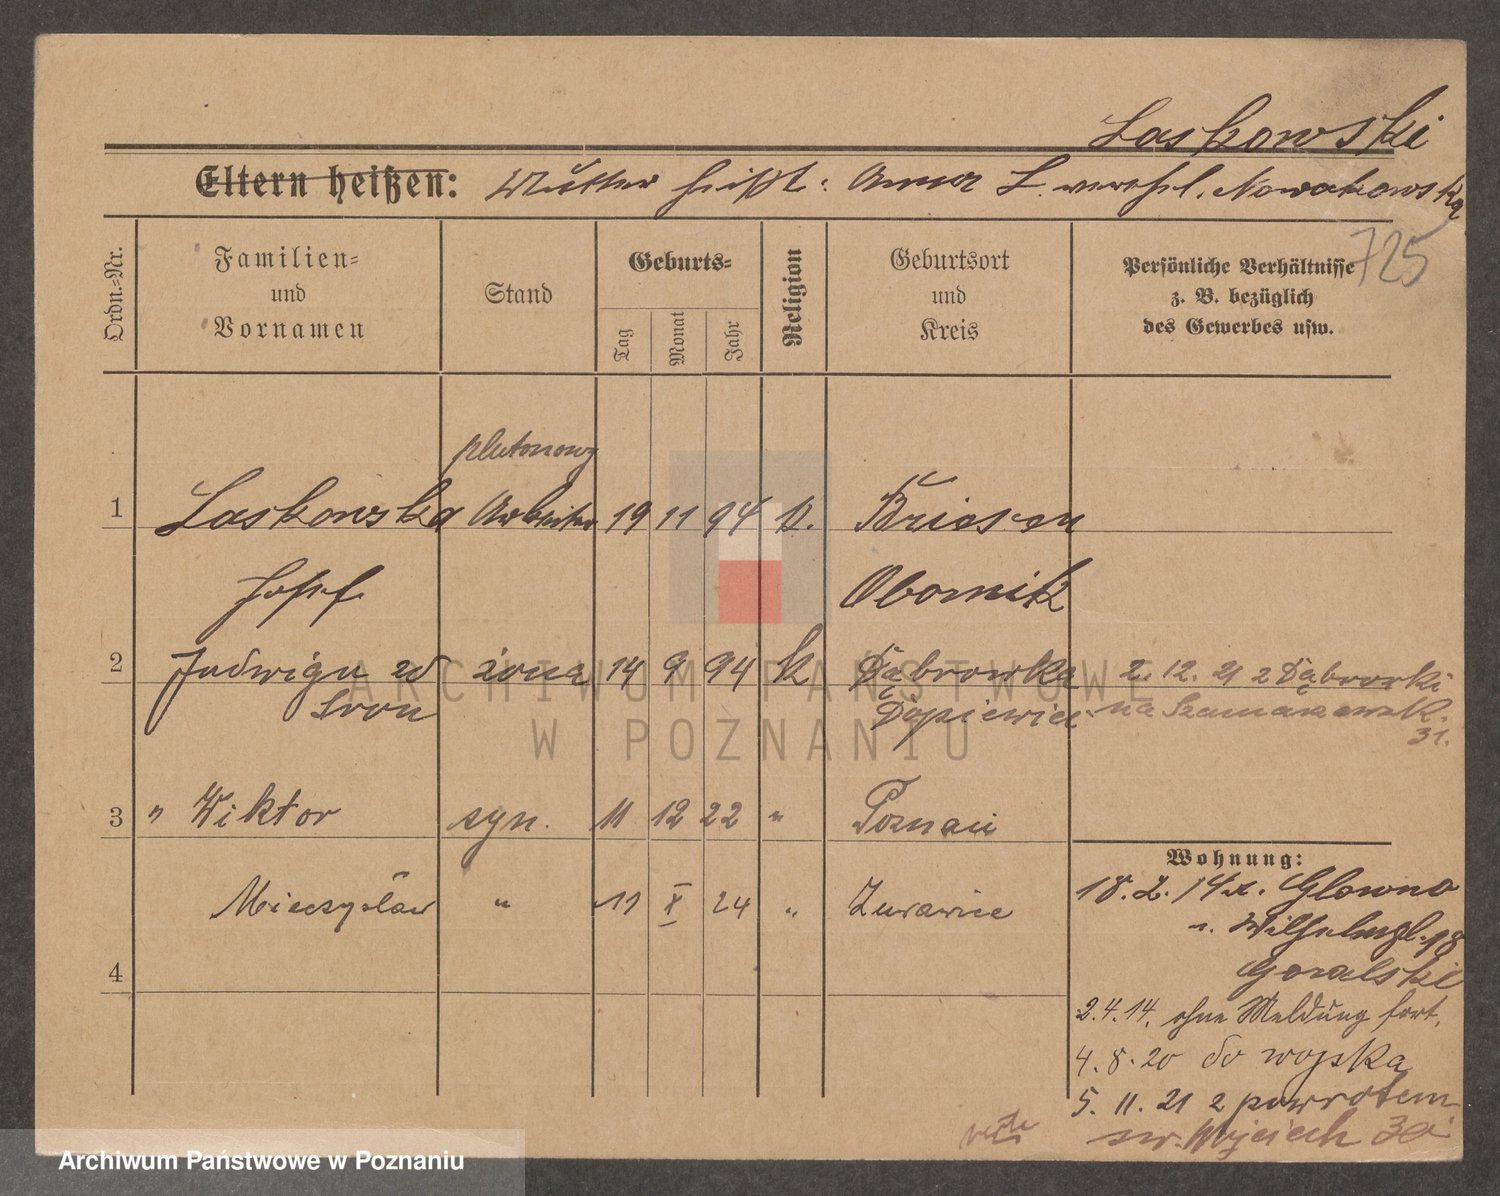 Laskowski
Eltern heißen: Mutter heißt: Anna L. verehel. Nowakowska
725
Ordn.-Nr.
Familien-
und
Vornamen
Stand
Geburts-
Tag
Monat
Jahr
Religion
Geburtsort
und
Kreis
Persönliche Verhältnisse
z. B. bezüglich
des Gewerbes usw.
plutonowy
1 Laskowska Arbeiter 19 11 94 k. Briesen
Josef Obornik
2 Jadwiga zd żona 14 9 94 k Dąbrowka 2. 12. 21 z Dąbrowki
Dopiewiec na
31.
3 " Wiktor syn. 11 12 22 " Poznań
Wohnung:
Mieczysław " 11 X 24 " Żurawice
18.2.14 v. Glowno
n. Wilhelmpl. 18
Goralski
4
2.4.14. ohne Meldung fort.
4.8.20 do wojska
5. 11. 21 z powrotem
verte św. Wojciech 30
ARCHIWUM PAŃSTWOWE
W POZNANIU
Archiwum Państwowe w Poznaniu